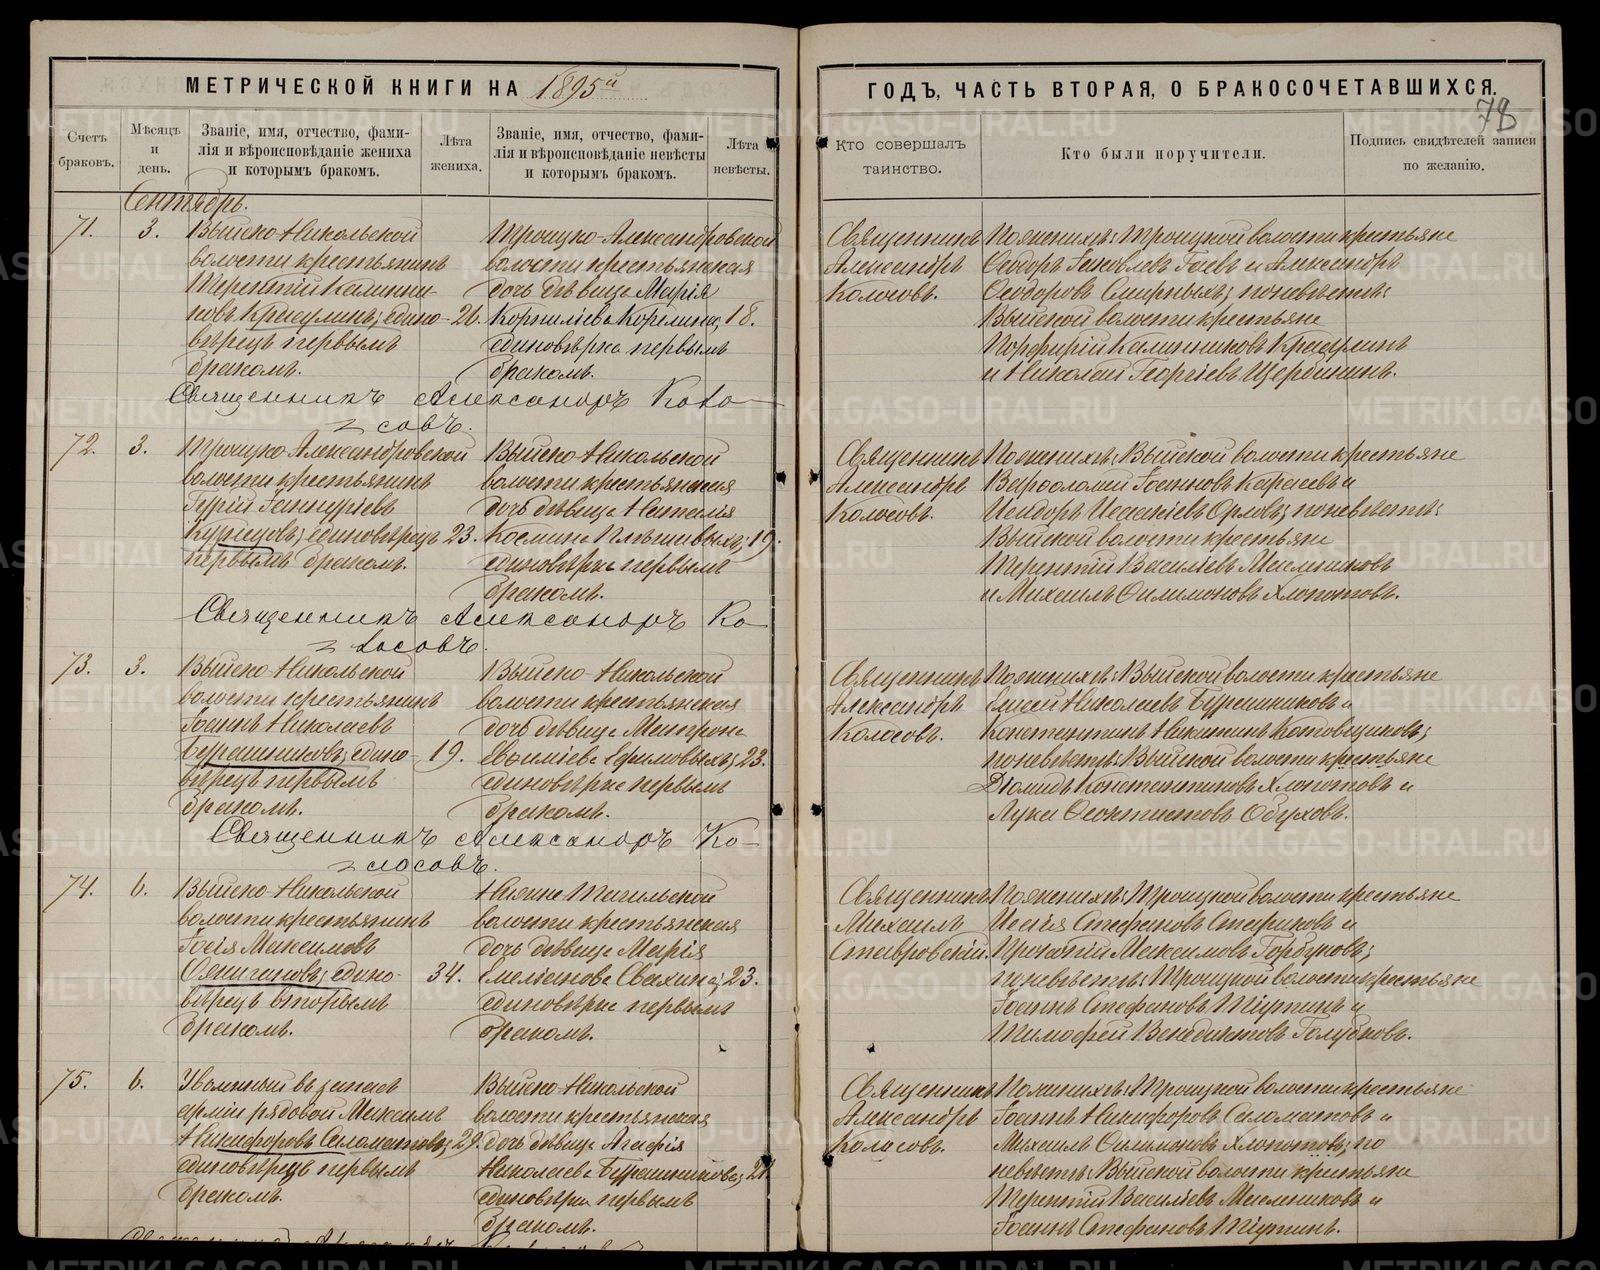 МЕТРИЧЕСКОЙ КНИГИ НА 1895й
Счетъ браковъ.
Мѣсяцъ и день.
Званіе, имя, отчество, фами-
лія и вѣроисповѣданіе жениха
и которымъ бракомъ.
Лѣта жениха.
Званіе, имя, отчество, фами-
лія и вѣроисповѣданіе невѣсты
и которымъ бракомъ.
Лѣта невѣсты.
Сентябрь.
71.
3.
Выйско-Никольской
волости крестьянинъ
Терентій Каллини-
ковъ Красулинъ; едино-
вѣрецъ первымъ
бракомъ.
20.
Троицко-Александровской
волости крестьянская
дочь дѣвица Марія
Корнилієва Корелина;
единовѣрка первымъ
бракомъ.
18.
Священникъ Александръ Коло-
совъ.
72.
3.
Троицко-Александровской
волости крестьянинъ
Гурій
единовѣрецъ
первымъ бракомъ.
23.
Выйско-Никольской
волости крестьянская
дочь дѣвица Наталія
Космина Плѣшивыхъ;
единовѣрка первымъ
бракомъ.
19.
Священникъ Александръ Ко-
лосовъ.
73.
3.
Выйско-Никольской
волости крестьянинъ
Іоаннъ Николаевъ
Бурашниковъ; едино-
вѣрецъ первымъ
бракомъ.
19.
Выйско-Никольской
волости крестьянская
дочь дѣвица Матрона
Евѳиміева Ефимовыхъ;
единовѣрка первымъ
бракомъ.
23.
Священникъ Александръ Ко-
лосовъ.
74.
6.
Выйско-Никольской
волости крестьянинъ
Іосія Максимовъ
единo-
вѣрецъ вторымъ
бракомъ.
34.
Нижне Тагильской
волости крестьянская
дочь дѣвица Марія
Емеліанова Свахина;
единовѣрка первымъ
бракомъ.
23.
75.
6.
Уволенный въ запасъ
арміи рядовой Максимъ
Никифоровъ Саламатовъ;
единовѣрецъ первымъ
бракомъ.
29.
Выйско-Никольской
волости крестьянская
дочь дѣвица Агафія
Николаева Бурашникова;
единовѣрка первымъ
бракомъ.
21.
ГОДЪ, ЧАСТЬ ВТОРАЯ, О БРАКОСОЧЕТАВШИХСЯ.
78
Кто совершалъ таинство.
Кто были поручители.
Подпись свидѣтелей записи
по желанію.
Священникъ
Александръ
Колосовъ.
По женихѣ: Троицкой волости крестьяне
Ѳеодоръ Іаковлевъ Гаевъ и Александръ
Ѳеодоровъ Смирныхъ; по невѣстѣ:
Выйской волости крестьяне
Порфирій Каллиниковъ Красулинъ
и Николай Георгіевъ Щербининъ.
Священникъ
Александръ
Колосовъ.
По женихѣ: Выйской волости крестьяне
Варѳоломей Іоанновъ Карасевъ и
Исидоръ Исаакіевъ Орловъ; по невѣстѣ:
Выйской волости крестьяне
Терентій Василіевъ Мельниковъ
и Михаилъ Филимоновъ Хлопотовъ.
Священникъ
Александръ
Колосовъ.
По женихѣ: Выйской волости крестьяне
Елисей Николаевъ Бурашниковъ и
Константинъ Никитинъ Котовщиковъ;
по невѣстѣ: Выйской волости крестьяне
Діомидъ Константиновъ Хлопотовъ и
Лука Ѳеоктистовъ Обуховъ.
Священникъ
Михаилъ
Ставровскій.
По женихѣ: Троицкой волости крестьяне
Исаія Стефановъ Стариковъ и
Прокопій Максимовъ Горбуновъ;
по невѣстѣ: Троицкой волости крестьяне
Іоаннъ Стефановъ Тіунинъ и
Тимофей Венедиктовъ Голубковъ.
Священникъ
Александръ
Колосовъ.
По женихѣ: Троицкой волости крестьяне
Іоаннъ Никифоровъ Саламатовъ и
Михаилъ Филимоновъ Хлопотовъ; по
невѣстѣ: Выйской волости крестьяне
Терентій Василіевъ Мельниковъ и
Іоаннъ Стефановъ Тіунинъ.
METRIKI.GASO-URAL.RU